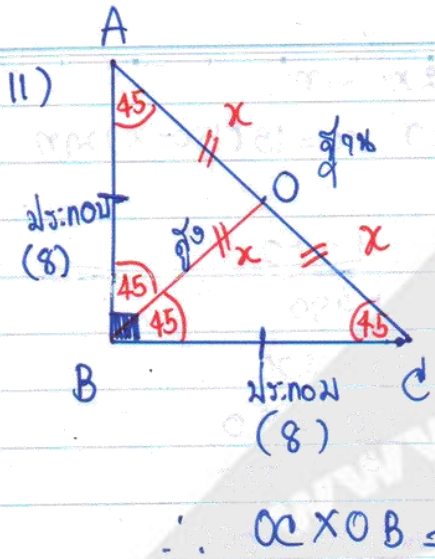 A
11)
45
x
ฐาน
O
ประกอบ
(8)
สูง
x
x
45
45
45
B
C
ประกอบ
(8)
∴ OC X OB =